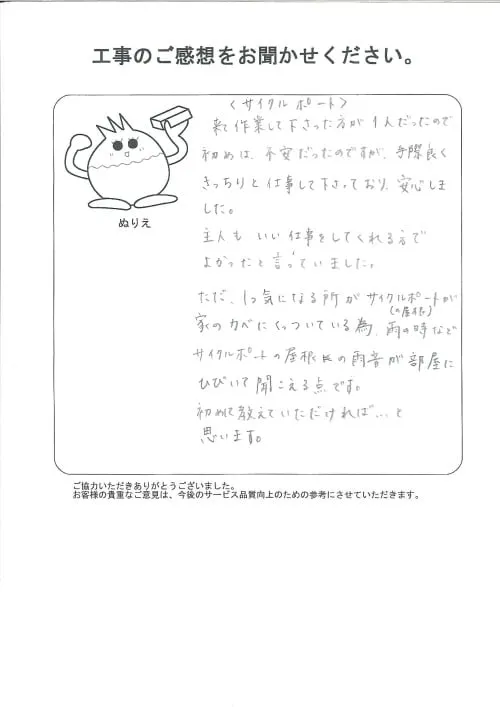 工事のご感想をお聞かせください。
〈サイクルポート〉
来て作業して下さった方が1人だったので
初めは、不安だったのですが、手際良く
きっちりと仕事して下さっており、安心しま
した。
主人も いい仕事をしてくれる方で
よかったと言っていました。
ぬりえ
ただ、1つ気になる所がサイクルポートが
(の屋根)
家のカベにくっついている為、雨の時など
サイクルポートの屋根の雨音が部屋に
ひびいて聞こえる点です。
初めに教えていただければ…と
思います。
ご協力いただきありがとうございました。
お客様の貴重なご意見は、今後のサービス品質向上のための参考にさせていただきます。